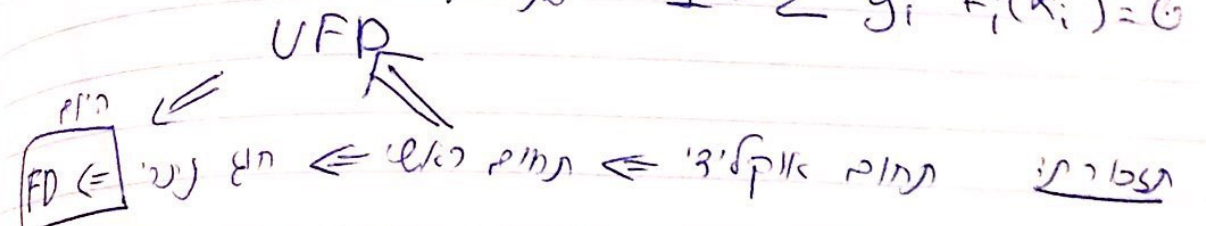 y_i F_i(x_i) = 0
UFD
היום
תזכורת: תחום אוקלידי ⇐ תחום ראשי ⇐ חוג נתרי ⇐ FD